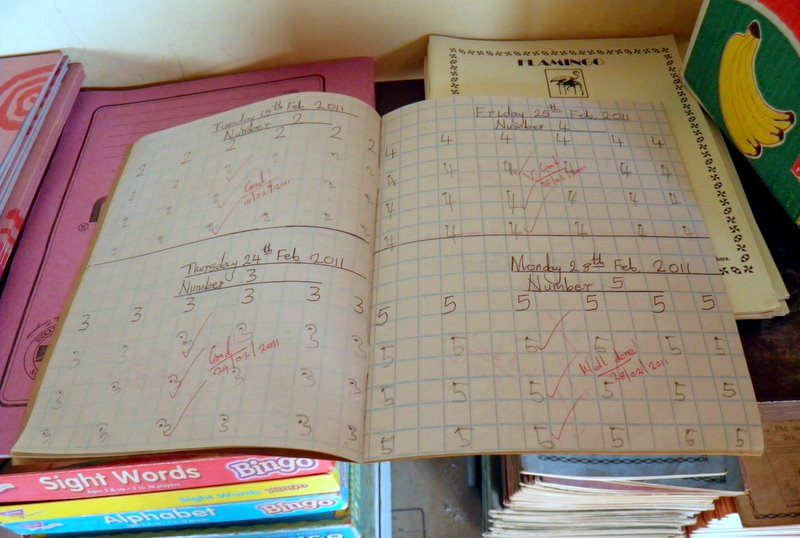 Tuesday 15th Feb 2011
Number 2
2 2 2 2 2 2
2 2 2 2 2
2 2 2 2 2
2 2 2 2 2
Good!
Thursday 24th Feb 2011
Number 3
3 3 3 3 3 3
3 3 3 3 3 3
3 3 3 3 3 3
3 3 3 3 3 3
Good
24/02/2011
Friday 25th Feb 2011
Number 4
4 4 4 4 4 4
4 4 4 4 4 4
4 4 4 4 4 4
4 4 4 4 4 4
Good
25/02/2011
Monday 28th Feb 2011
Number 5
5 5 5 5 5 5
5 5 5 5 5 5
5 5 5 5 5 5
5 5 5 5 5 5
Well done
28/02/2011
FLAMINGO
Sight Words Bingo
Ages 5 & up • 3 to 36 players
Sight Words Bingo
Alphabet Bingo